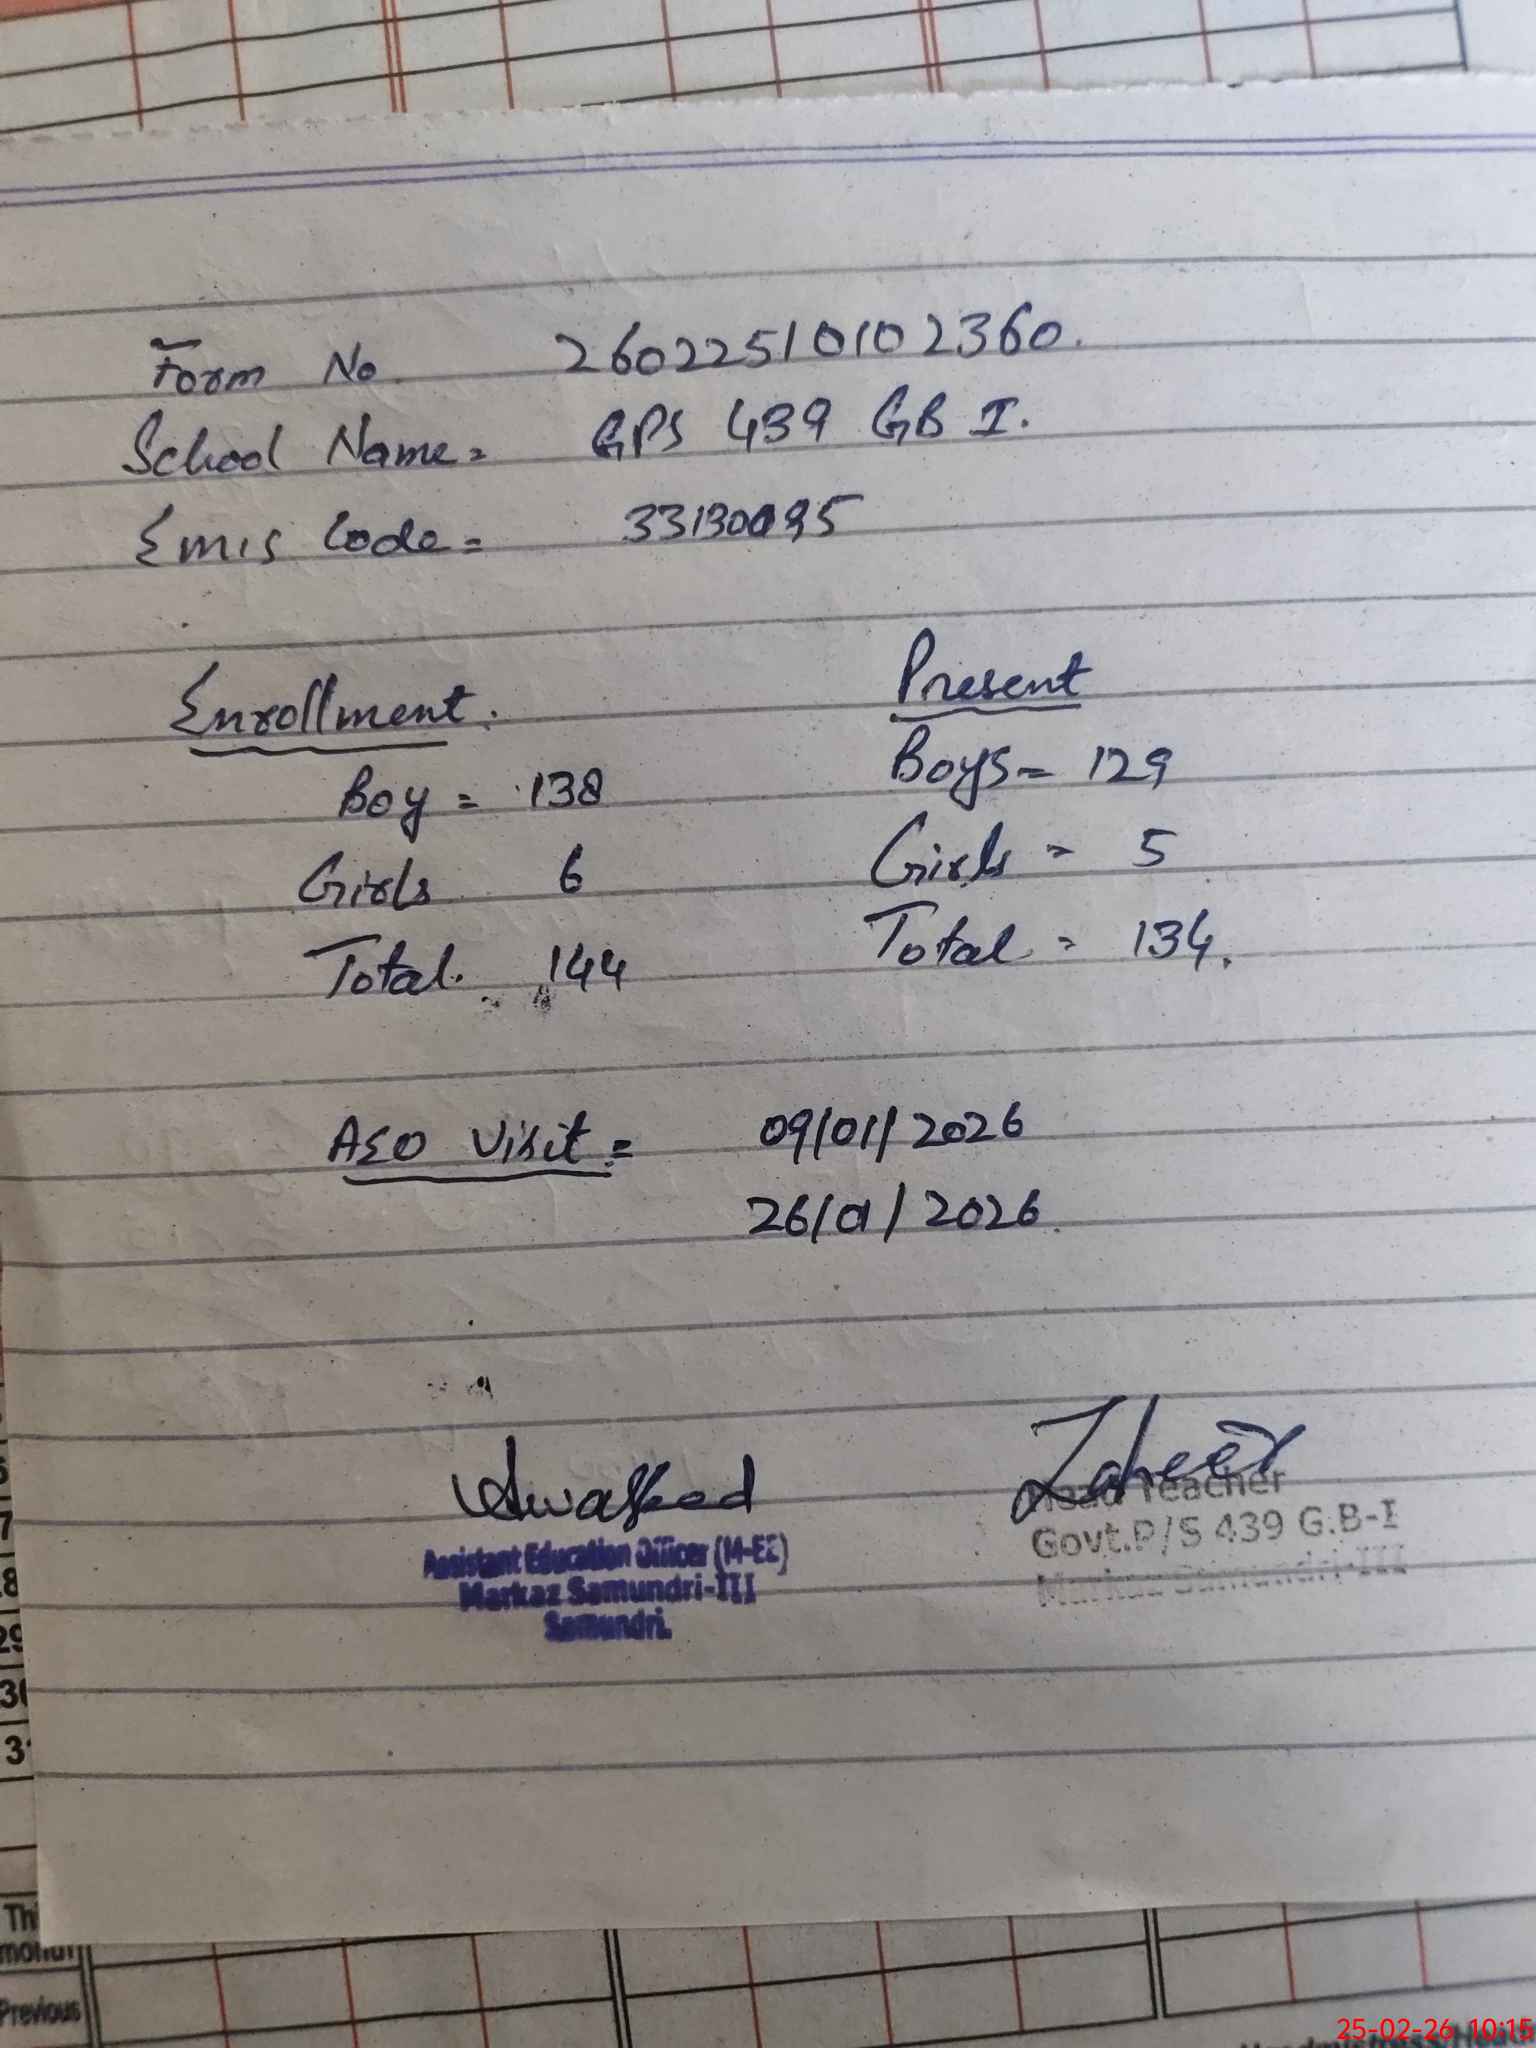 Form No. 26022510102360.
School Name = GPS 439 GB I.
Emis Code = 33130095
Enrollment.
Boy = 138
Girls 6
Total. 144
Present
Boys = 129
Girls = 5
Total = 134.
AEO Visit = 09/01/2026
26/01/2026.
Assistant Education Officer (M-EE)
Markaz Samundri-III
Samundri.
Zaheer
Head Teacher
Govt.P/S 439 G.B-I
Markaz Samundri-III
29
30
31
This
month
Previous
25-02-26 10:15